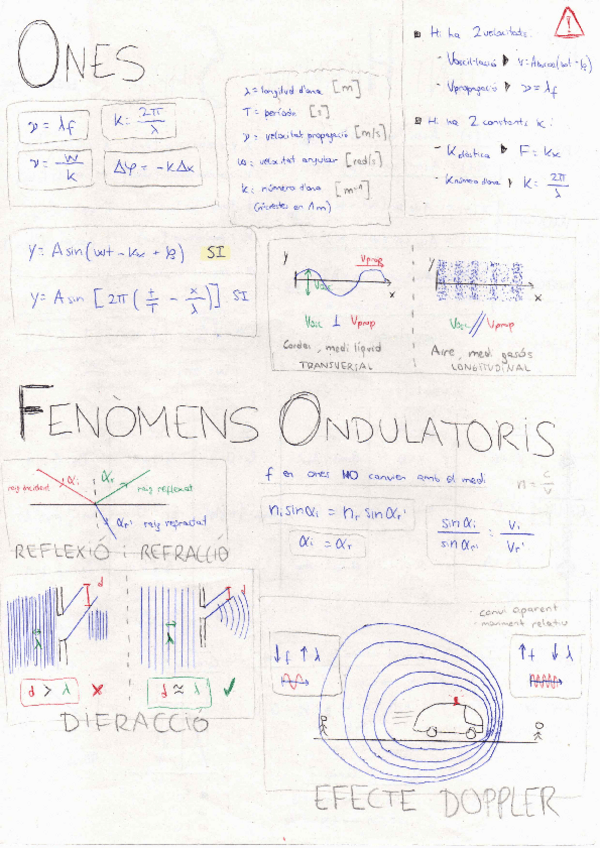 ONES
ν = λf
K = 2π/λ
ν = w/k
Δφ = -KΔx
λ = longitud d'ona [m]
T = període [s]
ν = velocitat propagació [m/s]
ω = velocitat angular [rad/s]
k = número d'ona [m⁻¹]
(nº crestes en 1m)
Hi ha 2 velocitats:
- Voscil·lació
- Vpropagació ν = λf
Hi ha 2 constants k:
- Kelàstica F = Kx
- Knúmero d'ona K = 2π/λ
y = A sin(wt - kx + φ) SI
y = A sin [2π(t/T - x/λ)] SI
y
Vprop
Vosc
x
Vosc ⊥ Vprop
Cordes, medi líquid
TRANSVERSAL
y
x
Vosc // Vprop
Aire, medi gasós
LONGITUDINAL
FENÒMENS ONDULATORIS
raig incident
αi
αr
raig reflexat
αr' raig refractat
REFLEXIÓ i REFRACCIÓ
f en ones NO canvien amb el medi
n = c/v
ni sin αi = nr sin αr'
αi = αr
sin αi / sin αr' = Vi / Vr'
d
λ
d > λ ✗
d
λ
d ≈ λ ✓
DIFRACCIÓ
canvi aparent
moviment relatiu
↓f ↑λ
↑f ↓λ
EFECTE DOPPLER